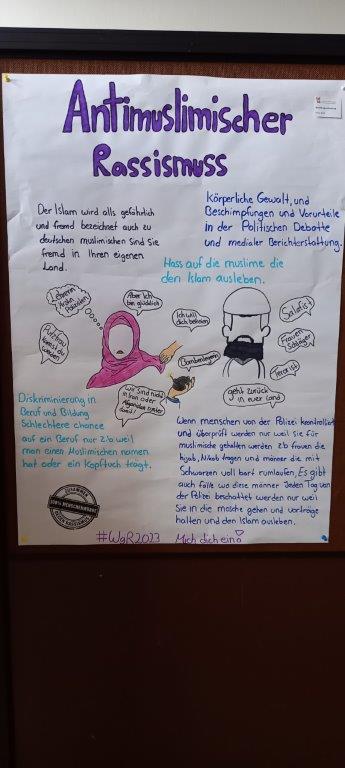 Antimuslimischer
Rassismuss
Der Islam wird alls gefährlich
und fremd bezeichnet auch zu
deutschen muslimischen Sind Sie
fremd in Ihren eigenen
Land.
körperliche Gewalt, und
Beschimpfungen und Vorurteile
in der Politischen Debatte
und medialer Berichterstattung.
Hass auf die muslime die
den Islam ausleben.
Lehrerin
Ärztin
Polizistin
Aber Ich
bin glücklich
Ich will
dich befreien
Salafist
Putzfrau
kannst du
werden
Bombenlegerin
Frauen
Schläger
Terrorist
Wir sind nicht
in Iran oder
Afganistan
Land!
geht zurück
in euer Land
Diskriminierung in
Beruf und Bildung
Schlechtere chance
auf ein Beruf nur z.b weil
man einen Muslimischen namen
hat oder ein Kopftuch trägt.
Wenn menschen von der Polizei kontrolliert
und überprüft werden nur weil sie für
muslimische gehalten werden z.b frauen die
hijab, Nikab tragen und männer die mit
Schwarzen voll bart rumlaufen, Es gibt
auch fälle wo diese männer Jeden Tag von
der Polizei beschattet werden nur weil
Sie in die mosche gehen und vorträge
halten und den Islam ausleben.
ZUSAMMEN
100% MENSCHENWÜRDE
GEGEN RASSISMUS
#WgR2023 Misch dich ein!